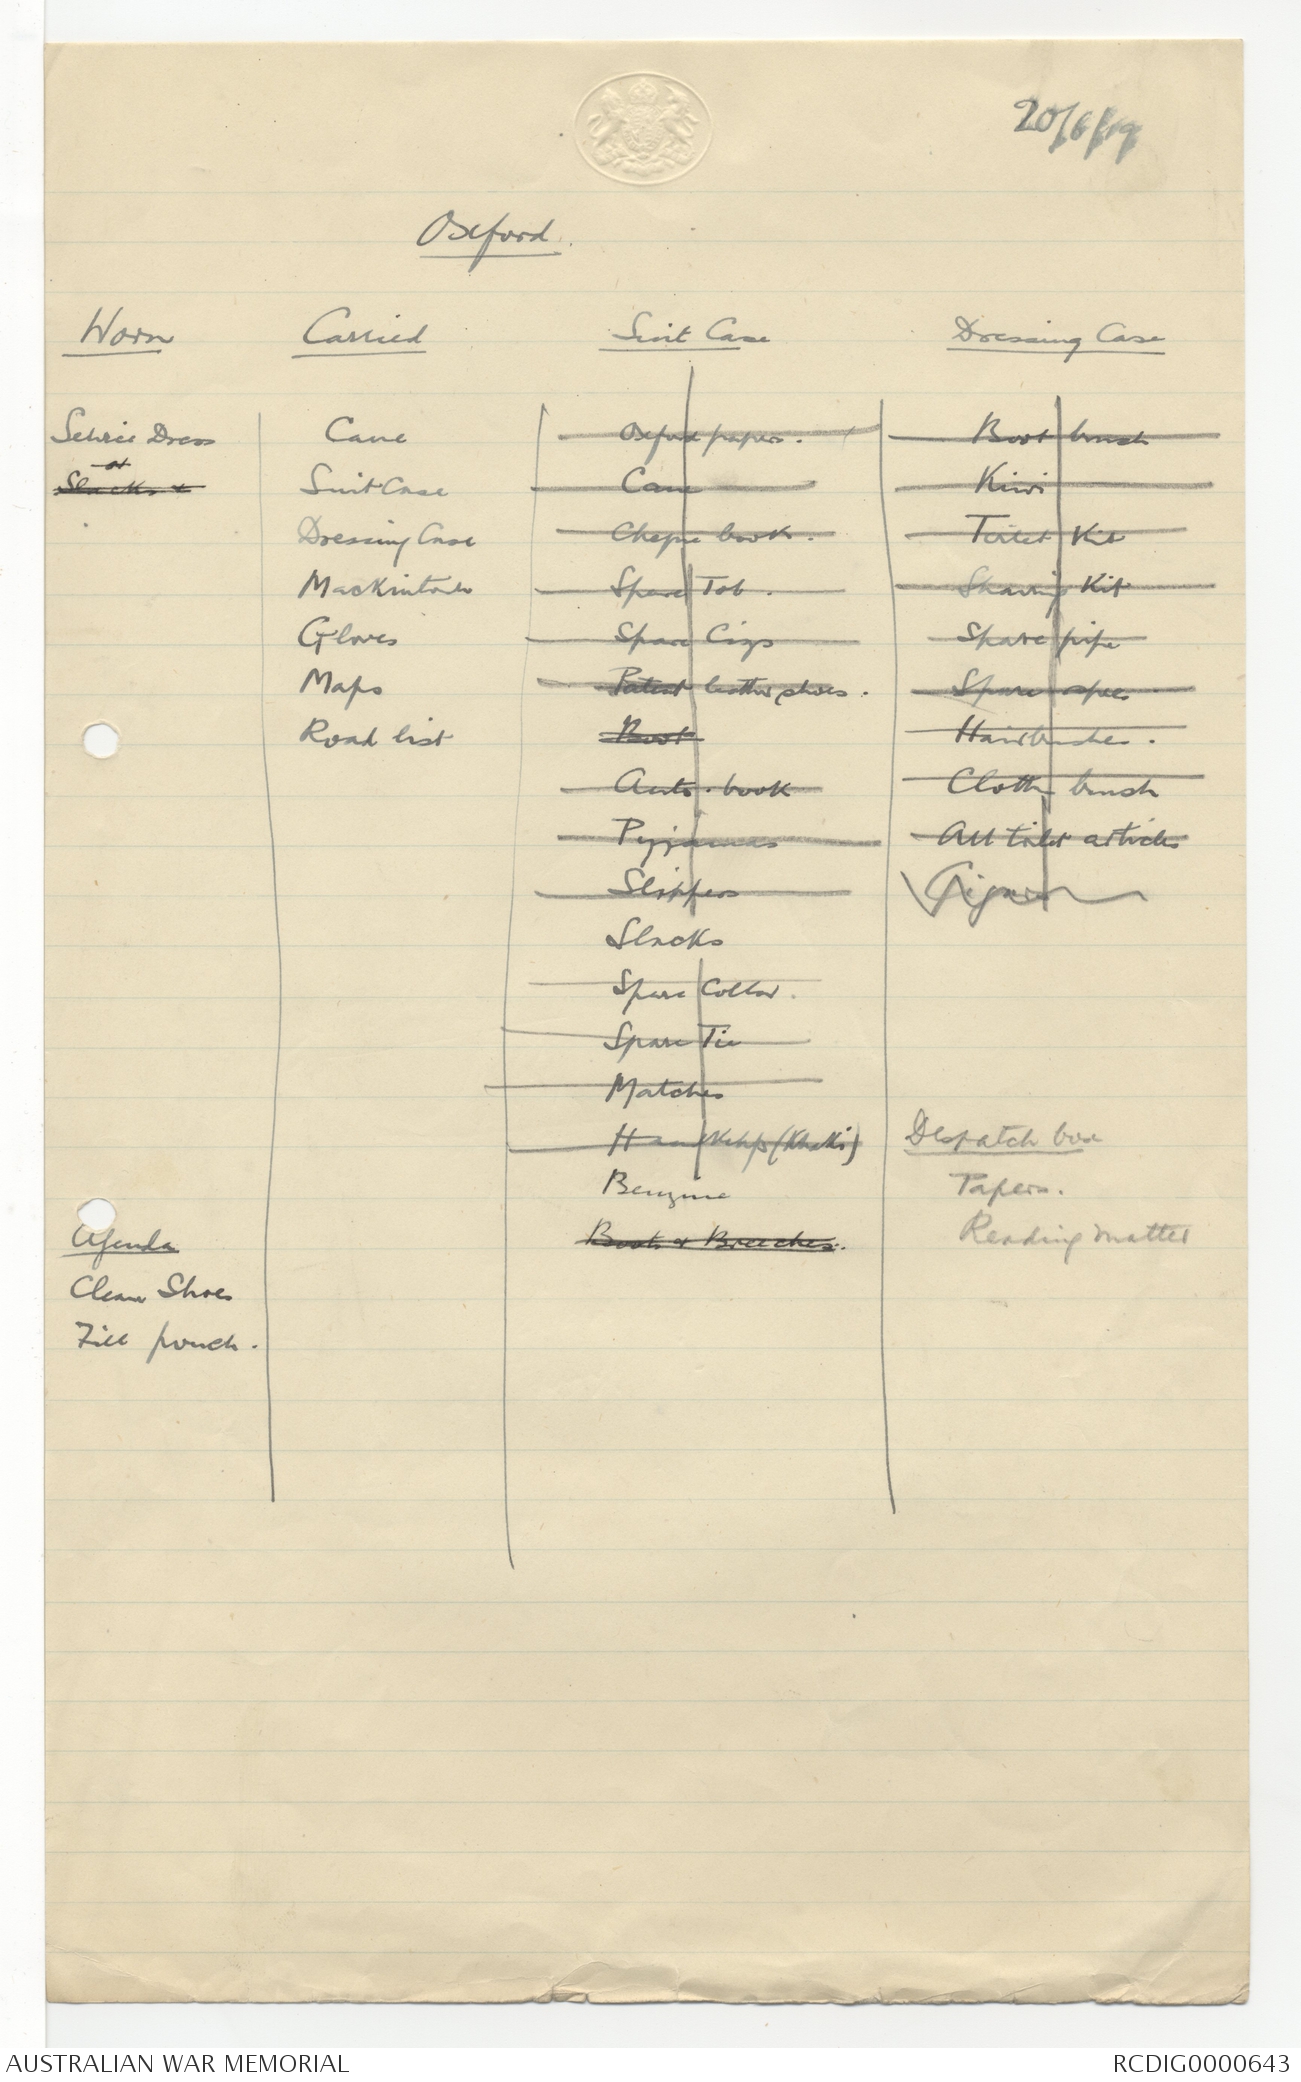 20/6/19
Oxford.
Worn
Service Dress
or
Slacks &
Agenda
Clean Shoes
Fill pouch.
Carried
Cane
Suit Case
Dressing Case
Mackintosh
Gloves
Maps
Road list
Suit Case
Oxford papers.
Cane
Cheque book.
Spare Tob.
Spare Cigs
Patent leather shoes.
Boot
Auto. book
Pyjamas
Slippers
Slacks
Spare Collar.
Spare Tie
Matches
Handkchfs (Khaki)
Benzine
Boots & Breeches.
Dressing Case
Boot brush
Kiwi
Toilet Kit
Shaving Kit
Spare pipe
Spare specs
Hairbrushes.
Cloth brush
All toilet articles
Cigars
Despatch box
Papers.
Reading matter
AUSTRALIAN WAR MEMORIAL
RCDIG0000643